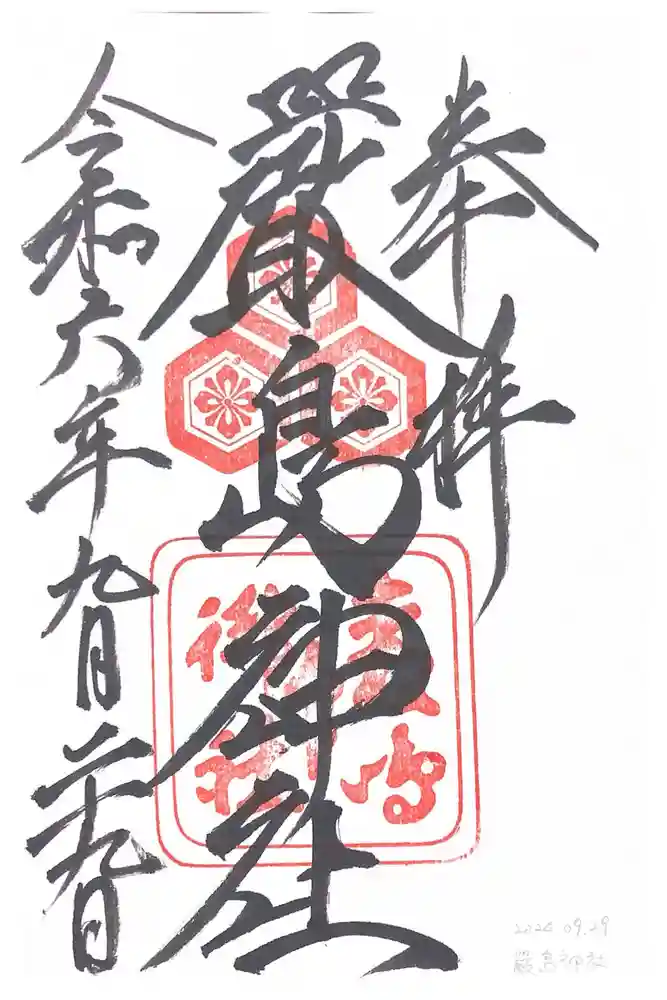 奉拝
嚴島神社
令和六年九月二十九日
2024 09.29
嚴島神社